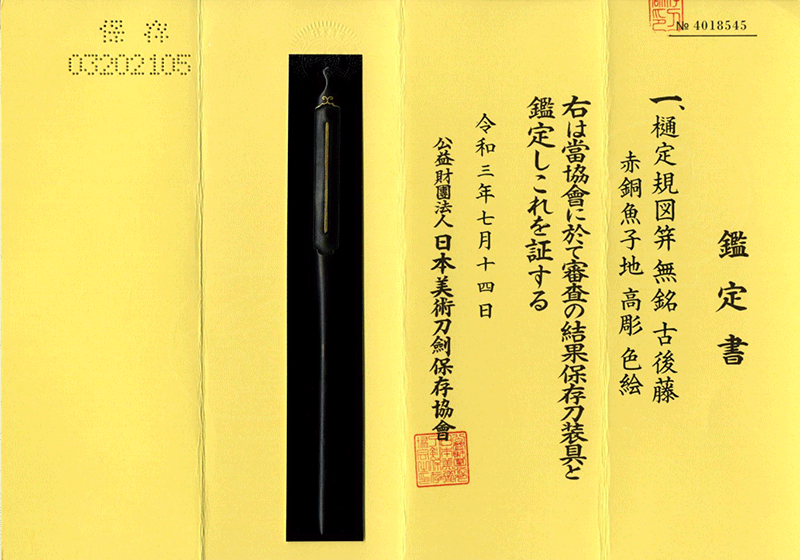 № 4018545
鑑定書
一、樋定規図笄 無銘 古後藤
赤銅魚子地 高彫 色絵
右は當協會に於て審査の結果保存刀装具と
鑑定しこれを証する
令和三年七月十四日
公益財團法人 日本美術刀劍保存協會
保存
03202105